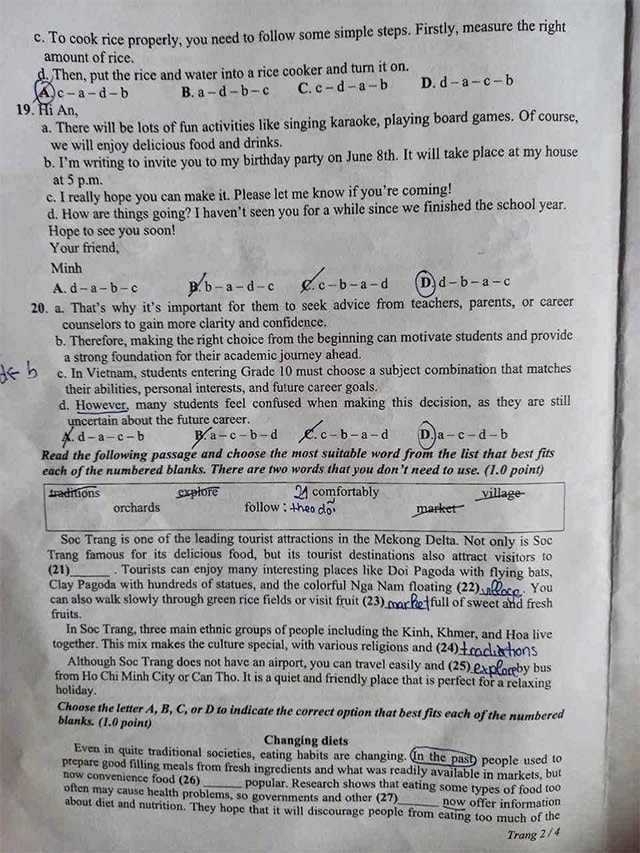 c. To cook rice properly, you need to follow some simple steps. Firstly, measure the right
amount of rice.
d. Then, put the rice and water into a rice cooker and turn it on.
A. c – a – d – b B. a – d – b – c C. c – d – a – b D. d – a – c – b
19. Hi An,
a. There will be lots of fun activities like singing karaoke, playing board games. Of course,
we will enjoy delicious food and drinks.
b. I'm writing to invite you to my birthday party on June 8th. It will take place at my house
at 5 p.m.
c. I really hope you can make it. Please let me know if you're coming!
d. How are things going? I haven't seen you for a while since we finished the school year.
Hope to see you soon!
Your friend,
Minh
A. d – a – b – c B. b – a – d – c C. c – b – a – d D. d – b – a – c
20. a. That's why it's important for them to seek advice from teachers, parents, or career
counselors to gain more clarity and confidence.
b. Therefore, making the right choice from the beginning can motivate students and provide
a strong foundation for their academic journey ahead.
b c. In Vietnam, students entering Grade 10 must choose a subject combination that matches
their abilities, personal interests, and future career goals.
d. However, many students feel confused when making this decision, as they are still
uncertain about the future career.
A. d – a – c – b B. a – c – b – d C. c – b – a – d D. a – c – d – b
Read the following passage and choose the most suitable word from the list that best fits
each of the numbered blanks. There are two words that you don't need to use. (1.0 point)
traditions explore 21 comfortably village
orchards follow : theo dõi market
Soc Trang is one of the leading tourist attractions in the Mekong Delta. Not only is Soc
Trang famous for its delicious food, but its tourist destinations also attract visitors to
(21)______ . Tourists can enjoy many interesting places like Doi Pagoda with flying bats,
Clay Pagoda with hundreds of statues, and the colorful Nga Nam floating (22) village. You
can also walk slowly through green rice fields or visit fruit (23) market full of sweet and fresh
fruits.
In Soc Trang, three main ethnic groups of people including the Kinh, Khmer, and Hoa live
together. This mix makes the culture special, with various religions and (24) traditions
Although Soc Trang does not have an airport, you can travel easily and (25) explore by bus
from Ho Chi Minh City or Can Tho. It is a quiet and friendly place that is perfect for a relaxing
holiday.
Choose the letter A, B, C, or D to indicate the correct option that best fits each of the numbered
blanks. (1.0 point)
Changing diets
Even in quite traditional societies, eating habits are changing. In the past, people used to
prepare good filling meals from fresh ingredients and what was readily available in markets, but
now convenience food (26) ______ popular. Research shows that eating some types of food too
often may cause health problems, so governments and other (27)______ now offer information
about diet and nutrition. They hope that it will discourage people from eating too much of the
Trang 2 / 4